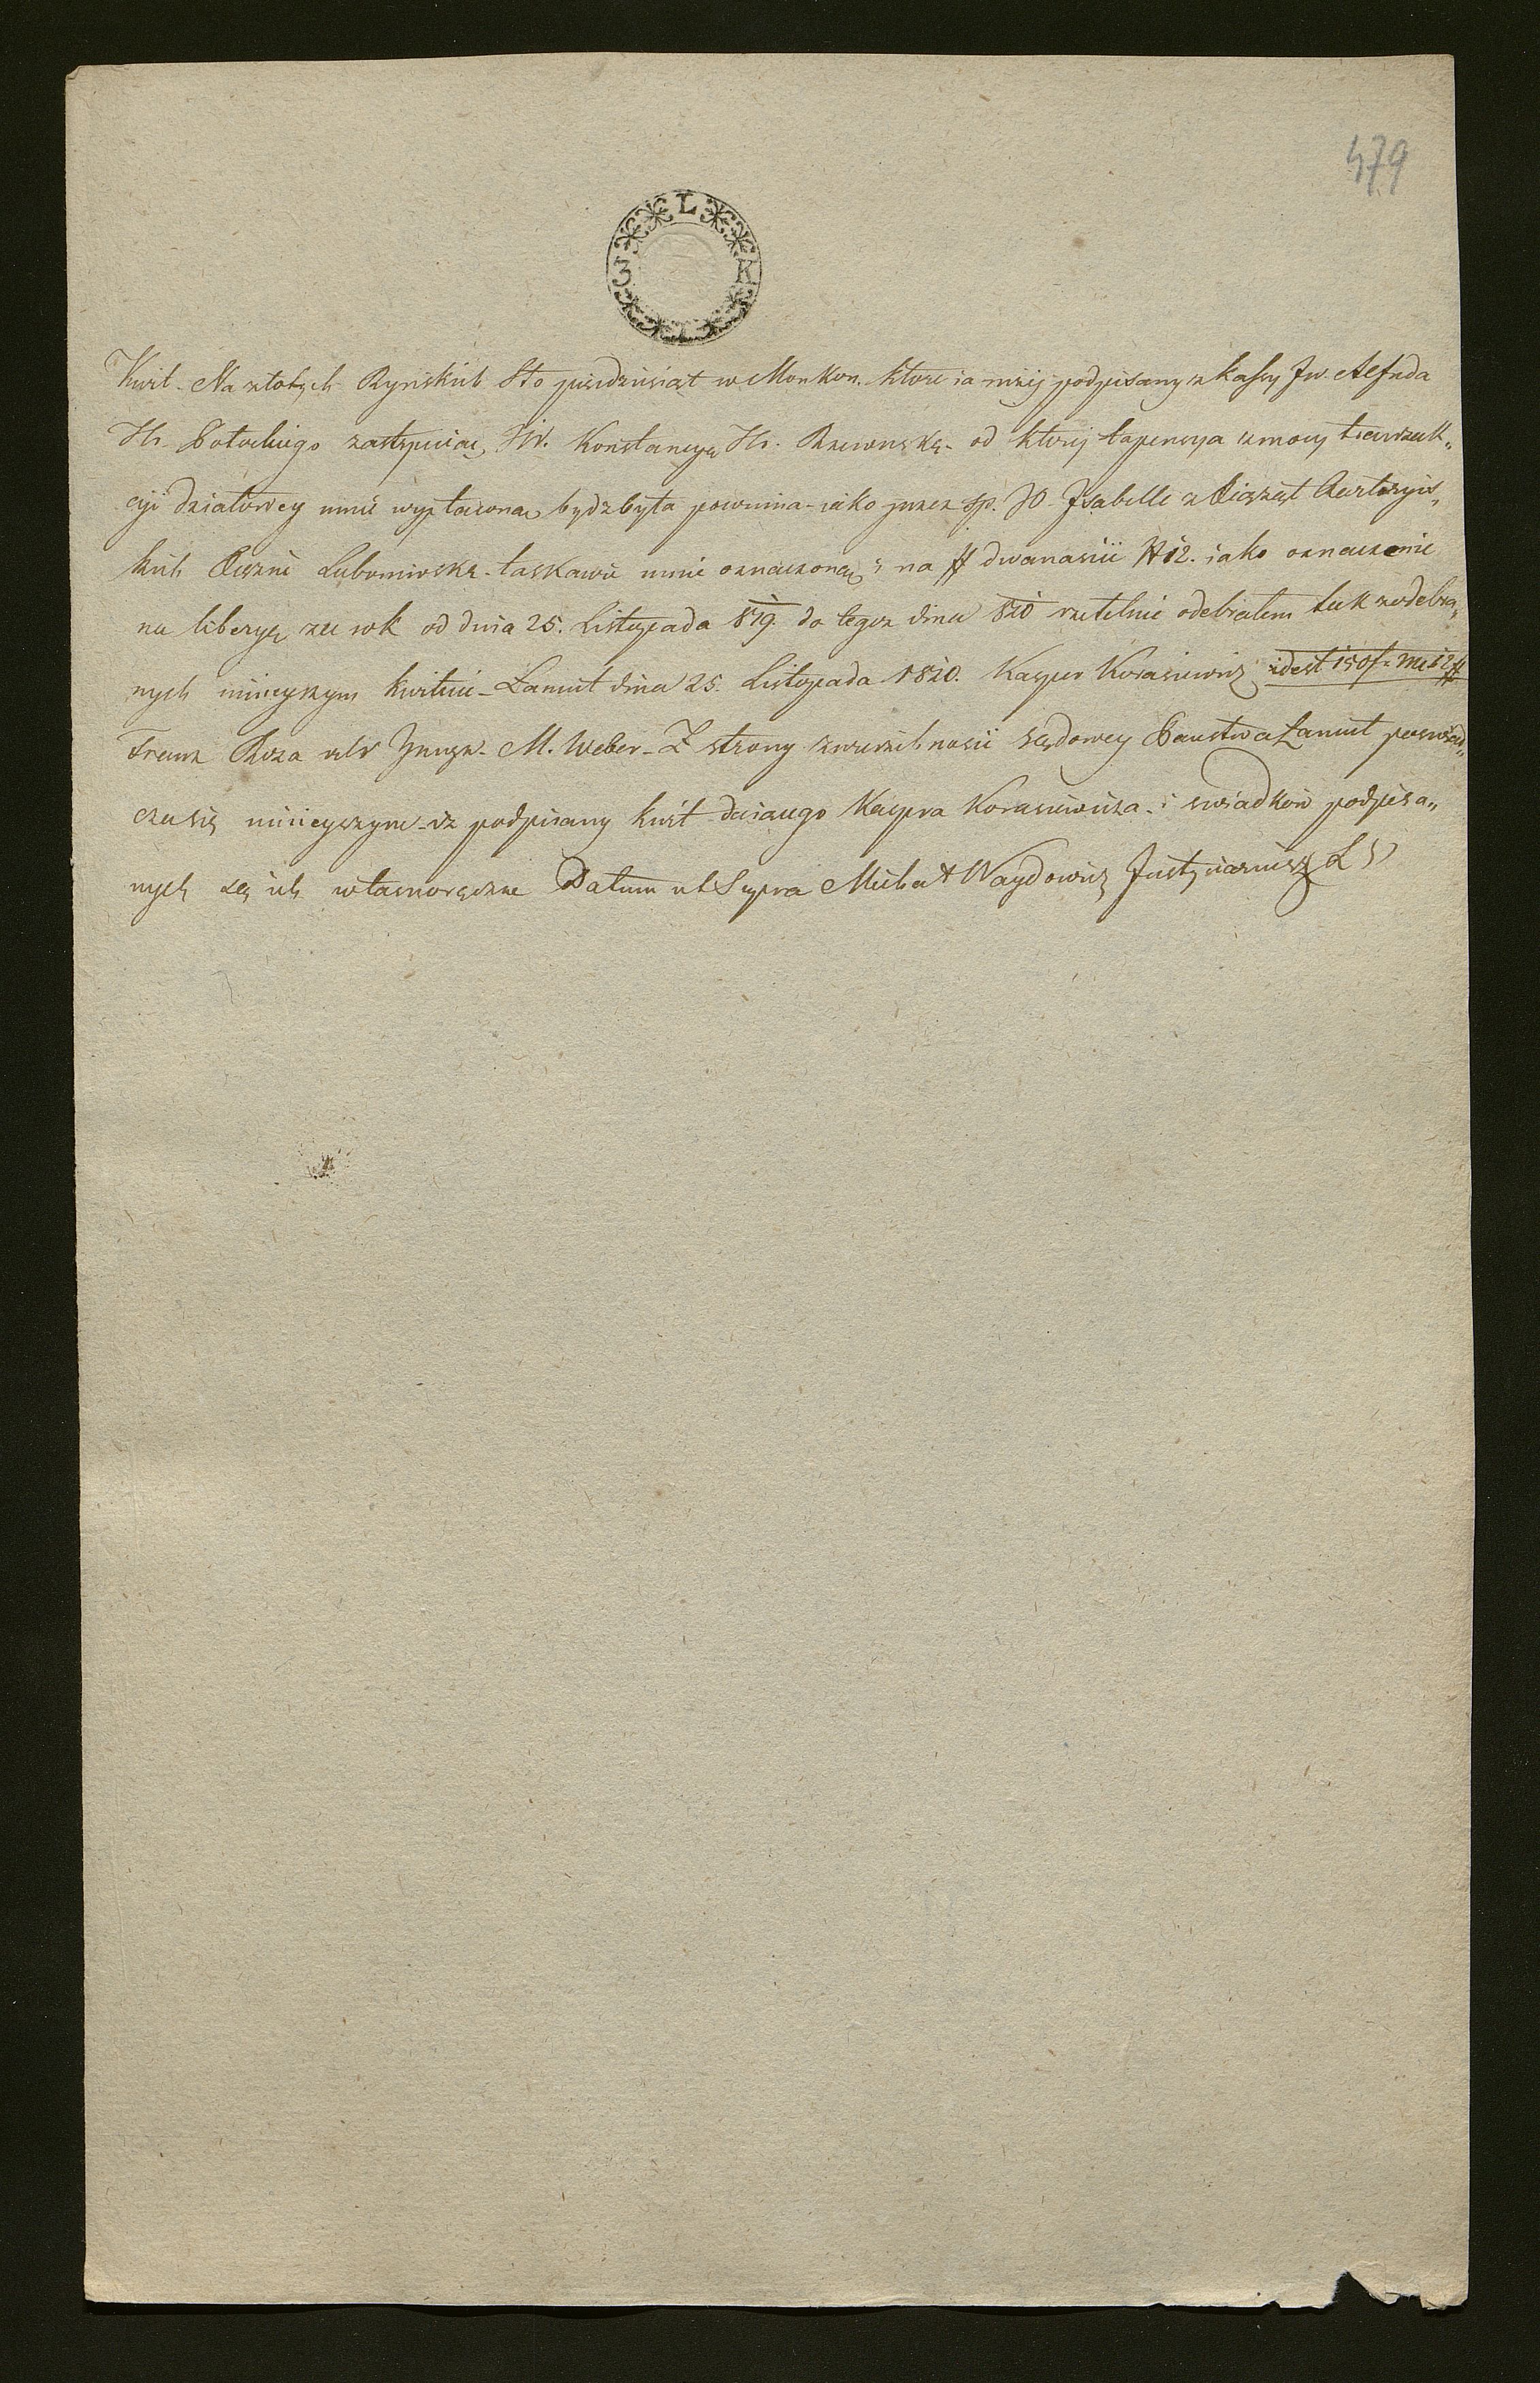 479
L
3 K
Kwit Na złotych Ryńskich Sto piędziesiąt w Mon Kon. które ia niżej podpisany z kassy Jw. Alfreda
Hr. Potockiego zastępuiąc JW. Konstancyą Hr. Rzewuską od której ta pensya z mocy tranzak„
cyi działowey mnie wypłacona bydz była powinna iako przez śp. JO. Isabelle z Xiążąt Czartorys„
kich Xiężnę Lubomirską łaskawie mnie oznaczoną i na # dwanaście N 12. iako oznaczenie
na liberyą za rok od dnia 25. Listopada 819. do tegoz dnia 820 rzetelnie odebrałem tak z odebra„
nych ninieyszym kwituię Łancut dnia 25. Listopada 1820. Kasper Korasiewicz idest 150 f. M 12 #
Franz Roza als M. Weber Z strony zwierzchności Sądowey Państwa Łancut poswiad„
cza się ninieyszym iż podpisany kwit daiącego Kaspra Korasiewicza i swiadków podpisa„
nych są ich własnoręczne Datum ut Supra Michał Waydowicz Justycyariusz L S